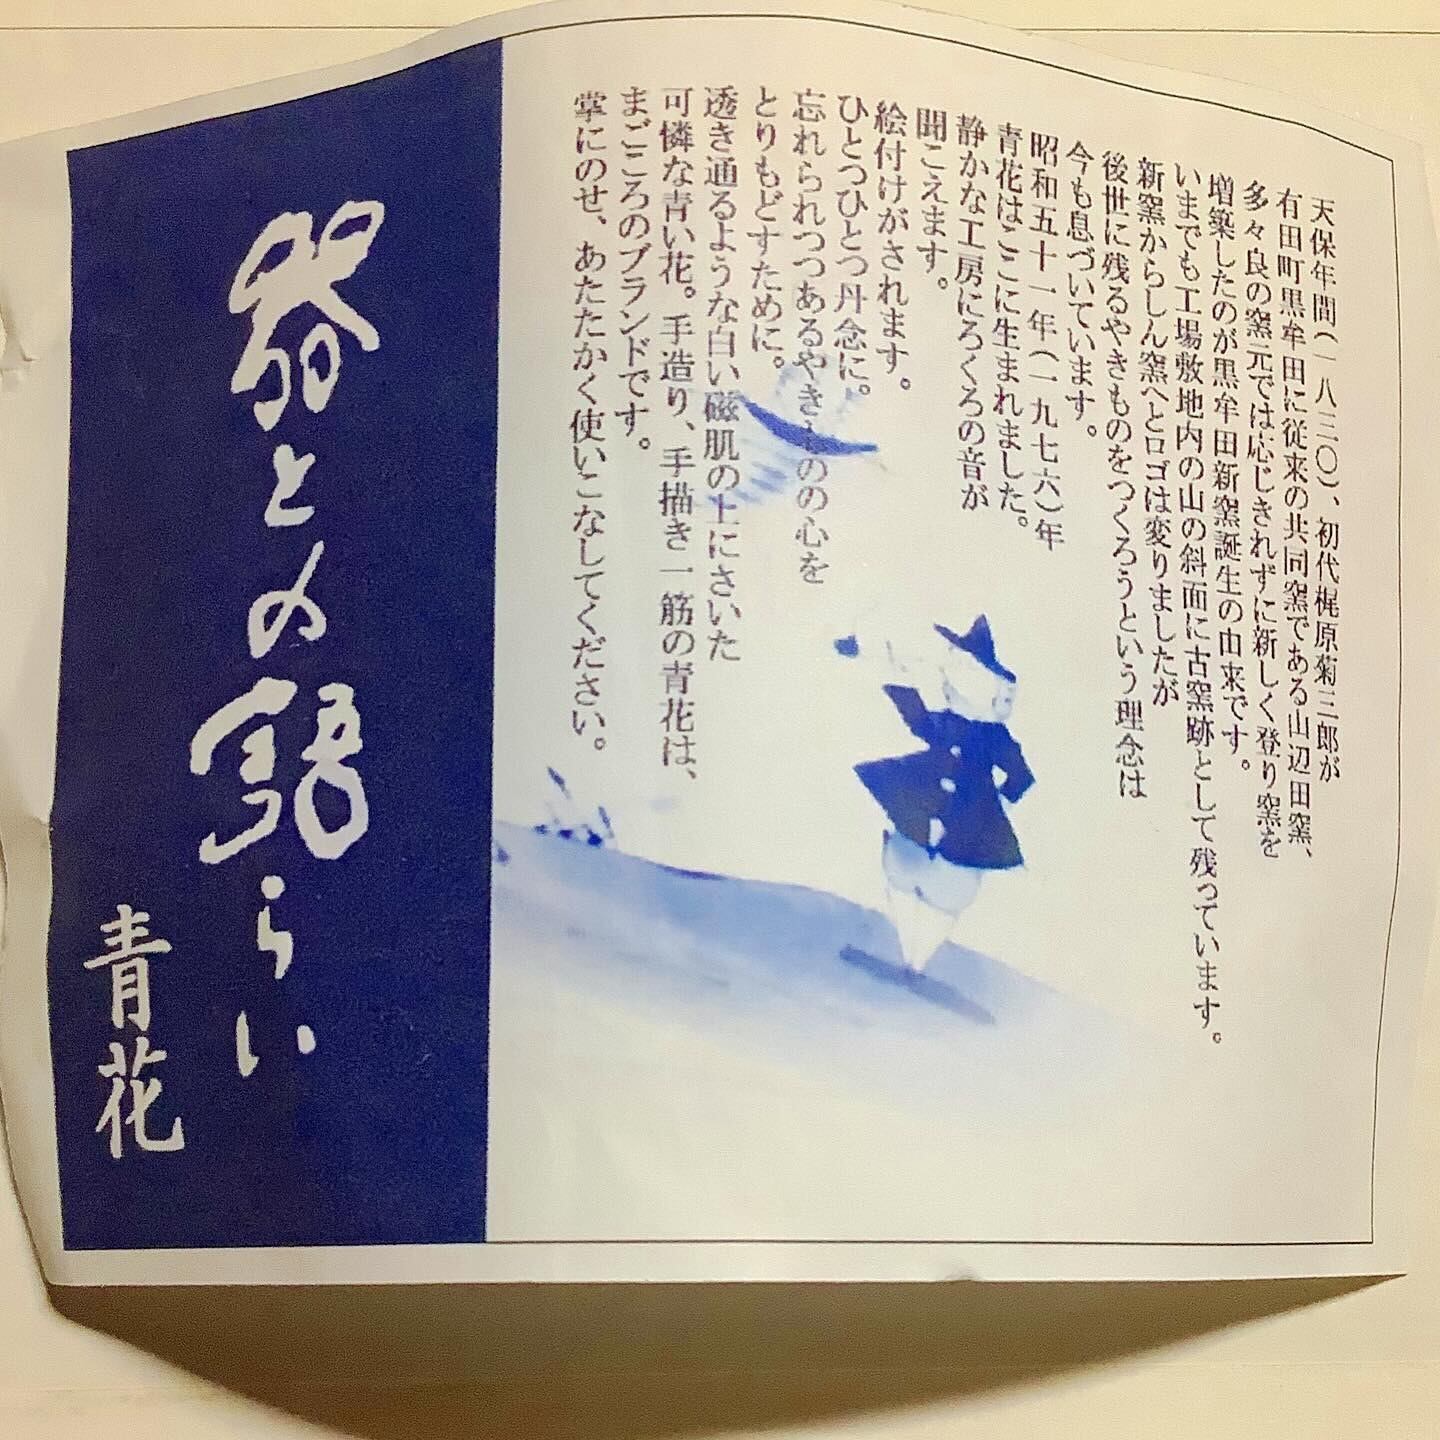 天保年間（一八三〇）、初代梶原菊三郎が
有田町黒牟田に従来の共同窯である山辺田窯、
多々良の窯元では応じきれずに新しく登り窯を
増築したのが黒牟田新窯誕生の由来です。
いまでも工場敷地内の山の斜面に古窯跡として残っています。
新窯からしん窯へとロゴは変りましたが
後世に残るやきものをつくろうという理念は
今も息づいています。
昭和五十一年（一九七六）年
青花はここに生まれました。
静かな工房にろくろの音が
聞こえます。
絵付けがされます。
ひとつひとつ丹念に。
忘れられつつあるやきものの心を
とりもどすために。
透き通るような白い磁肌の上にさいた
可憐な青い花。手造り、手描き一筋の青花は、
まごころのブランドです。
掌にのせ、あたたかく使いこなしてください。
との語らい
青花